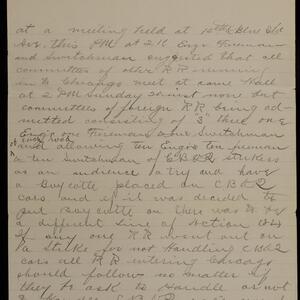 at a meeting held at 12th & Blue Isld
Ave. this PM at 2.10 Engr. Fireman
and Switchman suggested that all
committees of other RR running
in to Chicago meet at same Hall
at 2 PM Sunday 25 inst more but
committees of foreign RR being ad-
mitted consisting of "3" three one
Engr. one Fireman & one Switchman
from each Road
and allowing ten Engrs ten firemen
& ten Switchman of C B & Q strikers
as an audience & try and have
a Boycotte placed on C B & Q
cars and if it was decided to
put Boycotte on there was to be
a different line of action
if any one RR went out on
a Strike for not handling C B & Q
cars all RR entering Chicago
should follow no matter if
they to ask to Handle or not